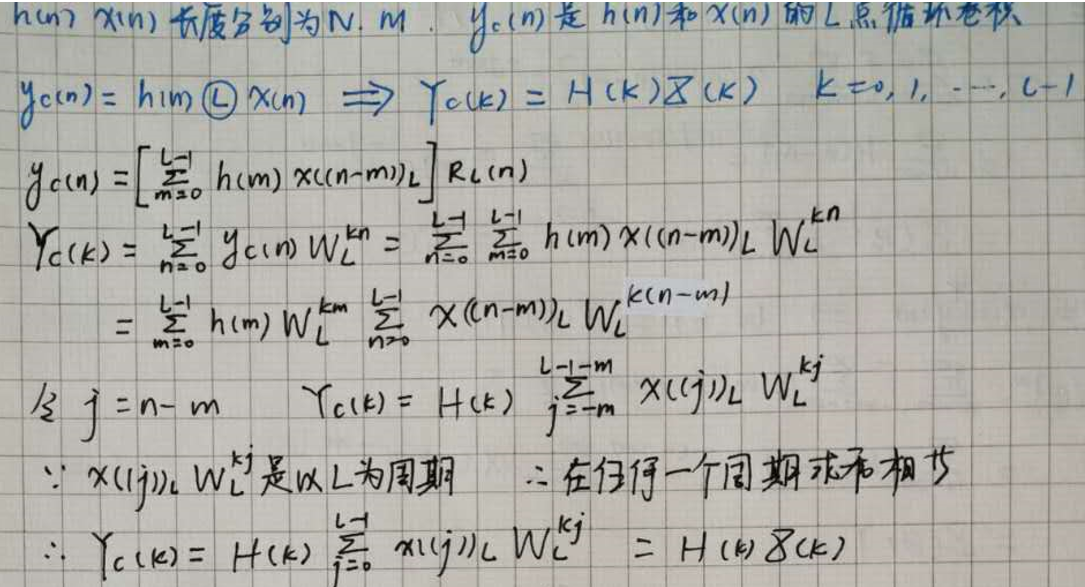 h(n) x(n) 长度分别为N. M . y_c(n) 是 h(n)和 x(n) 的 L 点循环卷积
y_c(n) = h(n) Ⓛ x(n) ⟹ Y_c(k) = H(k)X(k) k=0, 1, ···, L-1
y_c(n) = [∑_{m=0}^{L-1} h(m) x((n-m))_L] R_L(n)
Y_c(k) = ∑_{n=0}^{L-1} y_c(n) W_L^{kn} = ∑_{n=0}^{L-1} ∑_{m=0}^{L-1} h(m) x((n-m))_L W_L^{kn}
= ∑_{m=0}^{L-1} h(m) W_L^{km} ∑_{n=0}^{L-1} x((n-m))_L W_L^{k(n-m)}
令 j = n-m Y_c(k) = H(k) ∑_{j=-m}^{L-1-m} x((j))_L W_L^{kj}
∵ x((j))_L W_L^{kj} 是以L为周期 ∴ 在任何一个周期求和相等
∴ Y_c(k) = H(k) ∑_{j=0}^{L-1} x((j))_L W_L^{kj} = H(k) X(k)